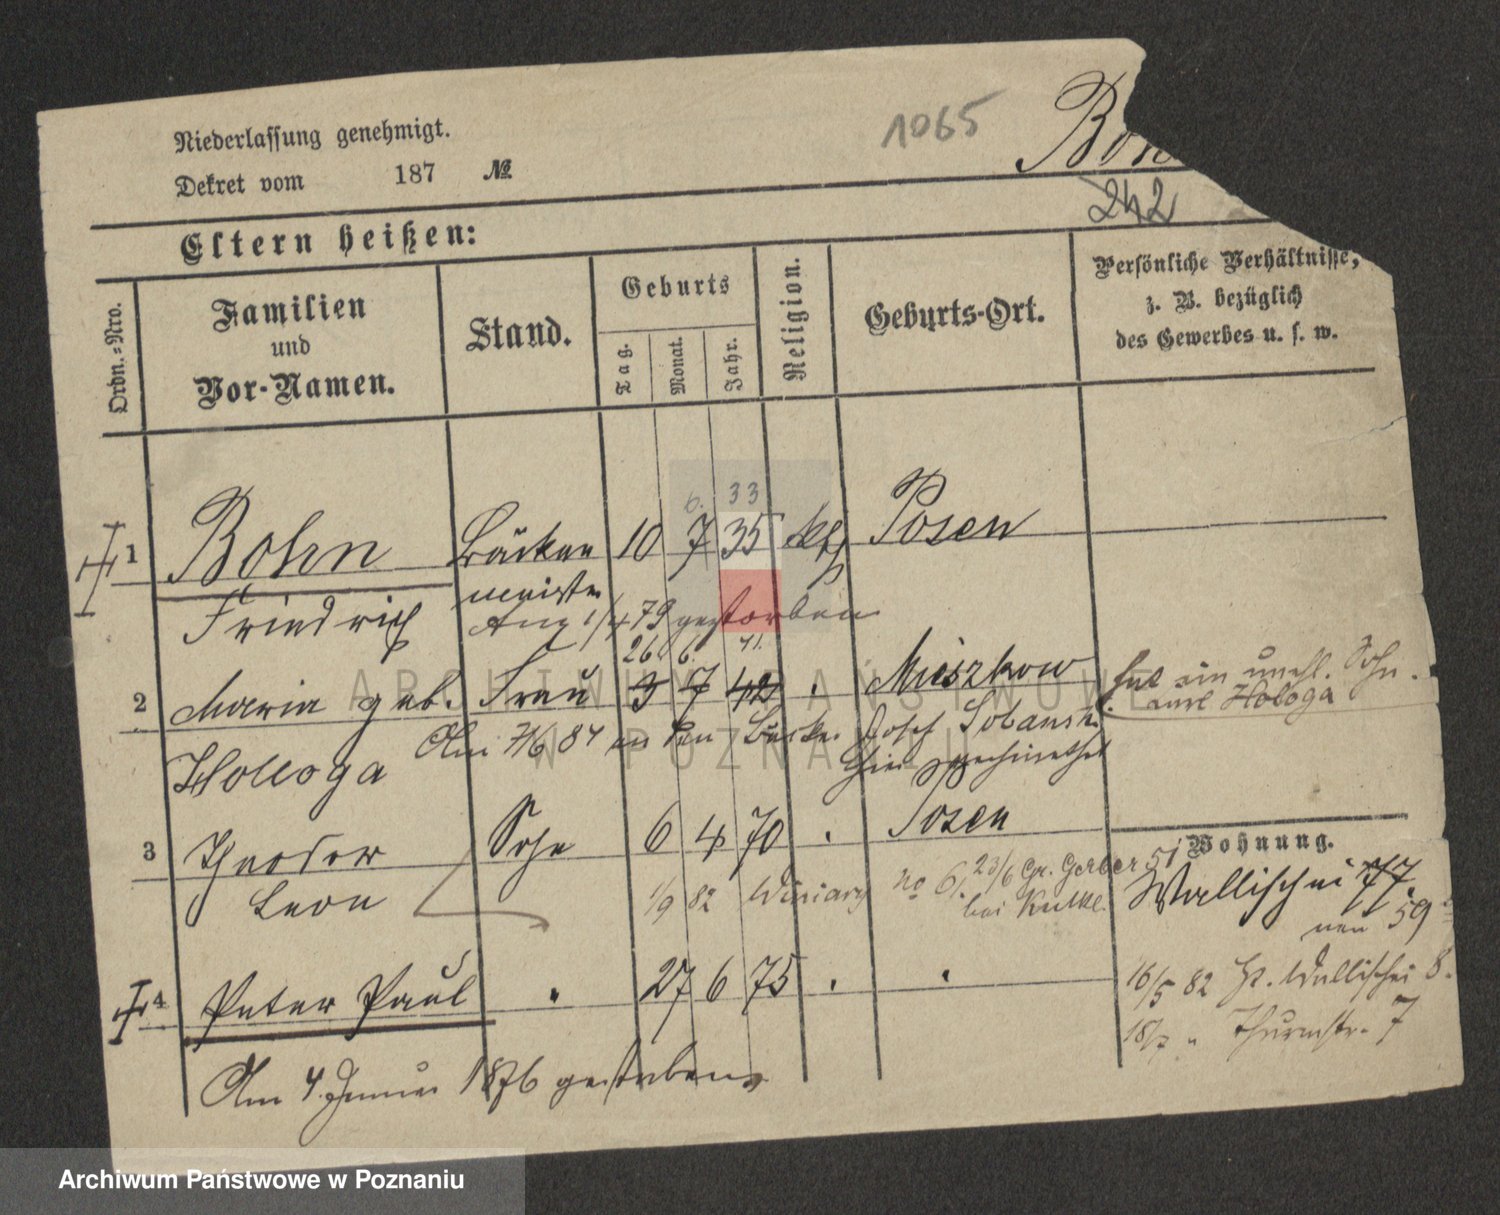 Niederlassung genehmigt.
1065
Dekret vom 187 №
242
Eltern heißen:
Ordn.-Nro.
Familien
und
Vor-Namen.
Stand.
Geburts
Tag.
Monat.
Jahr.
Religion.
Geburts-Ort.
Persönliche Verhältnisse,
z. B. bezüglich
des Gewerbes u. s. w.
6. 33
1 Bohn Bäcker 10 7 35 kth Posen
Friedrich meister
1/4 79 gestorben
26 6. 41.
2 Maria geb. Frau 3 7 42 . Mieszkow hat ein unehl. Sohn.
Hologa
Holloga Am 7/6 84 an den Bäcker Josef
hier
3 Theodor Sohn 6 4 70 . Posen
Leon 1/9 82 Winiary No 6. 23/6 Gr. Gerber 51
bei
Wohnung.
Wallischei 77.
neu 59
4 Peter Paul " 27 6 75 . "
Am 4. Januar 1876 gestorben
16/5 82 Wallischei 8.
18/7 " Thurmstr. 7
ARCHIWUM PAŃSTWOWE
W POZNANIU
Archiwum Państwowe w Poznaniu